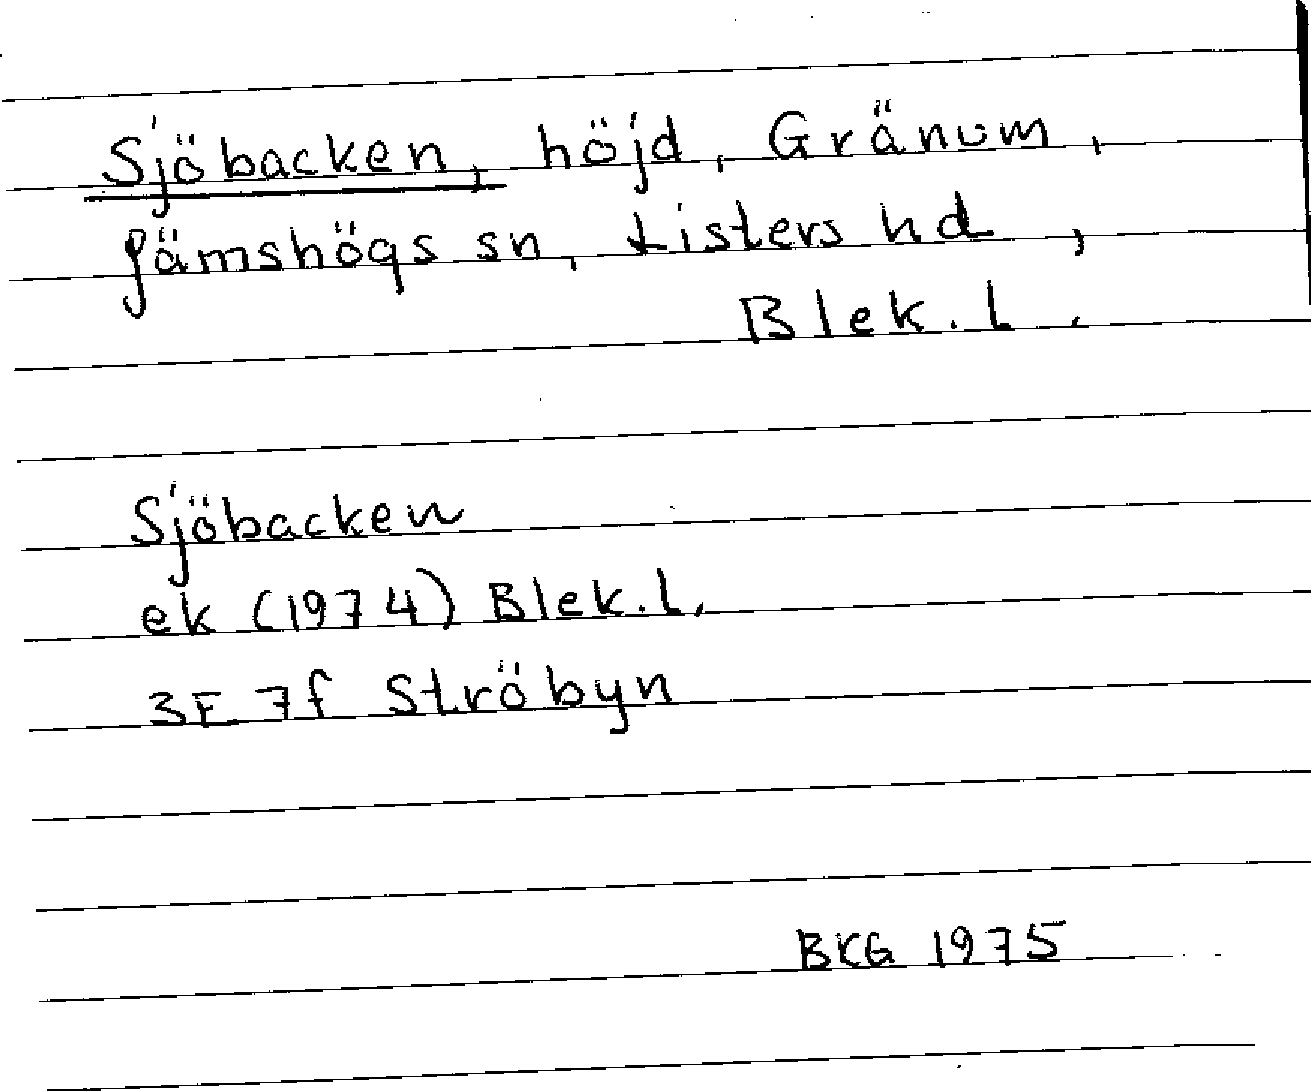 Sjöbacken, höjd, Gränum,
Jämshögs sn, Listers hd,
Blek. l.
Sjöbacken
ek (1974) Blek. l.
3E 7f Ströbyn
BKG 1975